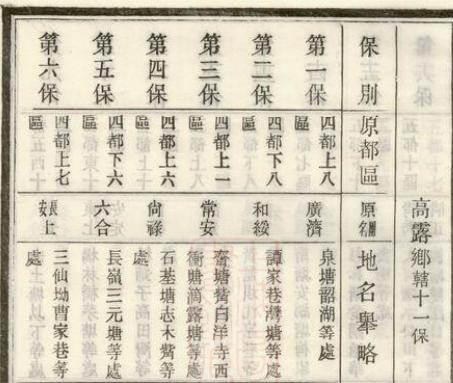 高露鄉轄十一保
保別 原都區 原團 地名舉略
第一保 四都上八區 廣濟 泉塘韶湖等處
第二保 四都下八區 和綏 譚家巷灣塘等處
第三保 四都上一區 常安 奋塘觜白洋寺西衝塘滴露塘等處
第四保 四都上六區 尙祿 石基塘志木觜等處
第五保 四都下六區 六合 長嶺三元塘等處
第六保 四都上七區 長安上 三仙坳曹家巷等處